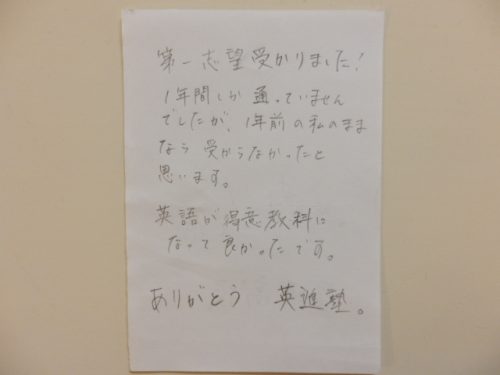 第一志望受かりました!
1年間しか通っていません
でしたが、1年前の私のまま
なら受からなかったと
思います。
英語が得意教科に
なって良かったです。
ありがとう 英進塾。